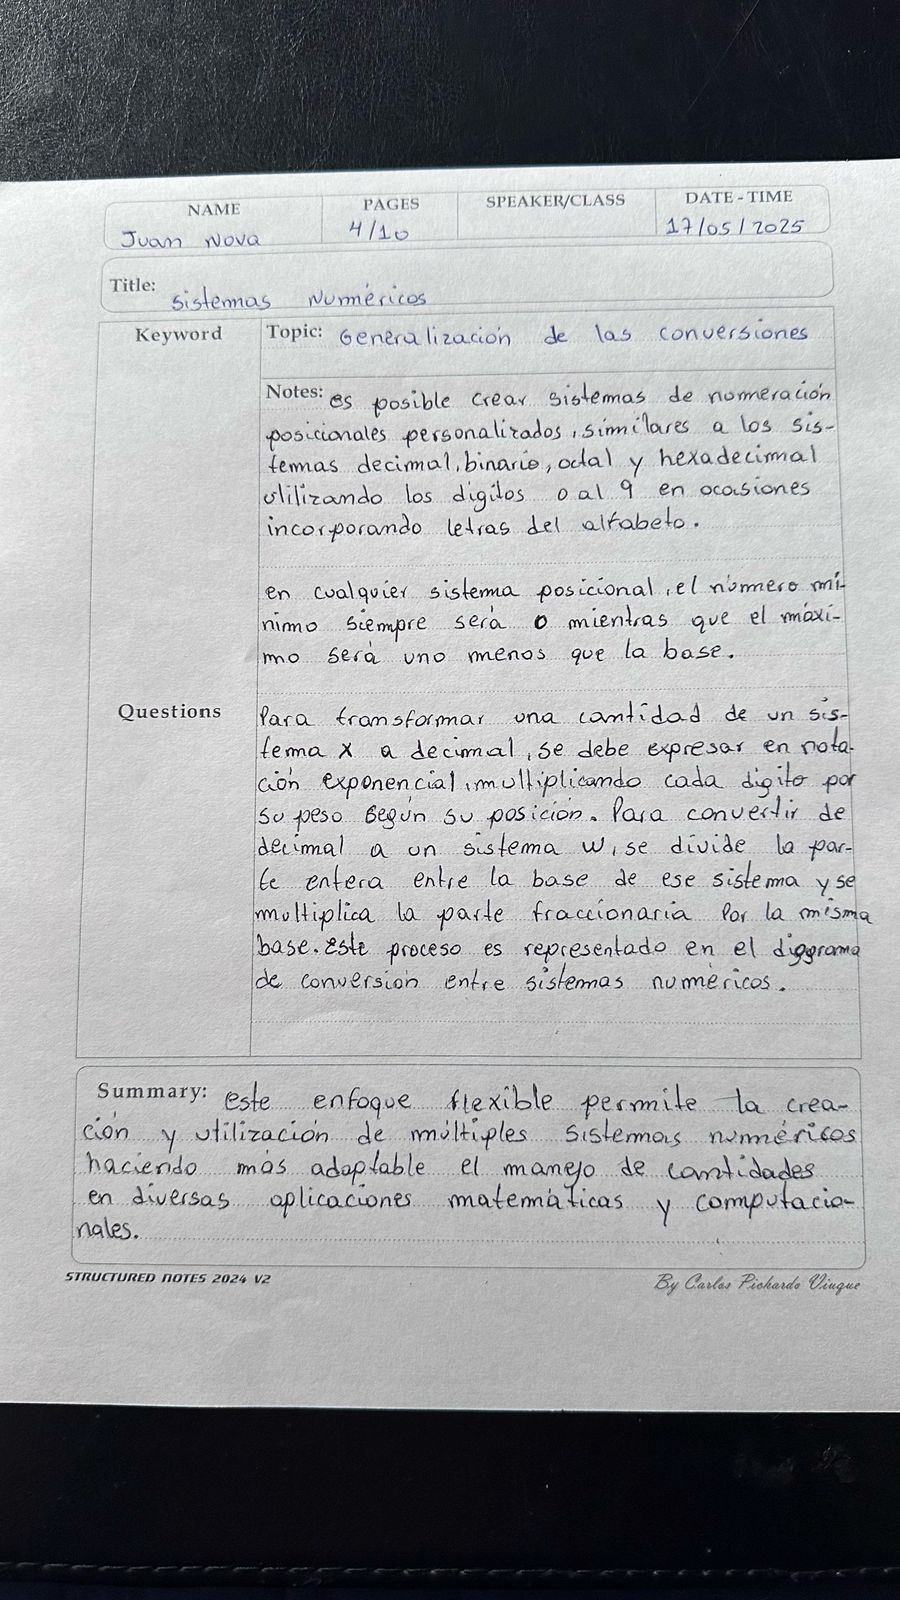 NAME PAGES SPEAKER/CLASS DATE-TIME
Juan Nova 4/10 17/05/2025
Title: Sistemas Numéricos
Keyword Topic: Generalización de las conversiones
Notes: es posible crear sistemas de numeración
posicionales personalizados, similares a los sis-
temas decimal, binario, octal y hexadecimal
utilizando los digitos 0 al 9 en ocasiones
incorporando letras del alfabeto.
en cualquier sistema posicional, el número mí-
nimo siempre será 0 mientras que el máxi-
mo será uno menos que la base.
Questions Para transformar una cantidad de un sis-
tema X a decimal, se debe expresar en nota-
ción exponencial, multiplicando cada digito por
su peso según su posición. Para convertir de
decimal a un sistema W, se divide la par-
te entera entre la base de ese sistema y se
multiplica la parte fraccionaria por la misma
base. Este proceso es representado en el diagrama
de conversión entre sistemas numéricos.
Summary: este enfoque flexible permite la crea-
ción y utilización de múltiples sistemas numéricos
haciendo más adaptable el manejo de cantidades
en diversas aplicaciones matemáticas y computacio-
nales.
STRUCTURED NOTES 2024 V2 By Carlos Pichardo Viuque